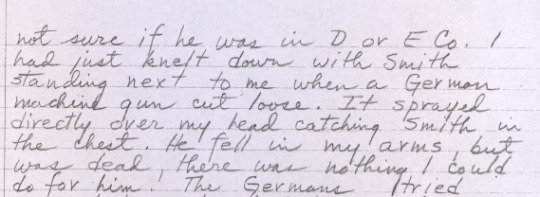 not sure if he was in D or E Co. I
had just knelt down with Smith
standing next to me when a German
machine gun cut loose. It sprayed
directly over my head catching Smith in
the chest. He fell in my arms, but
was dead, there was nothing I could
do for him. The Germans tried